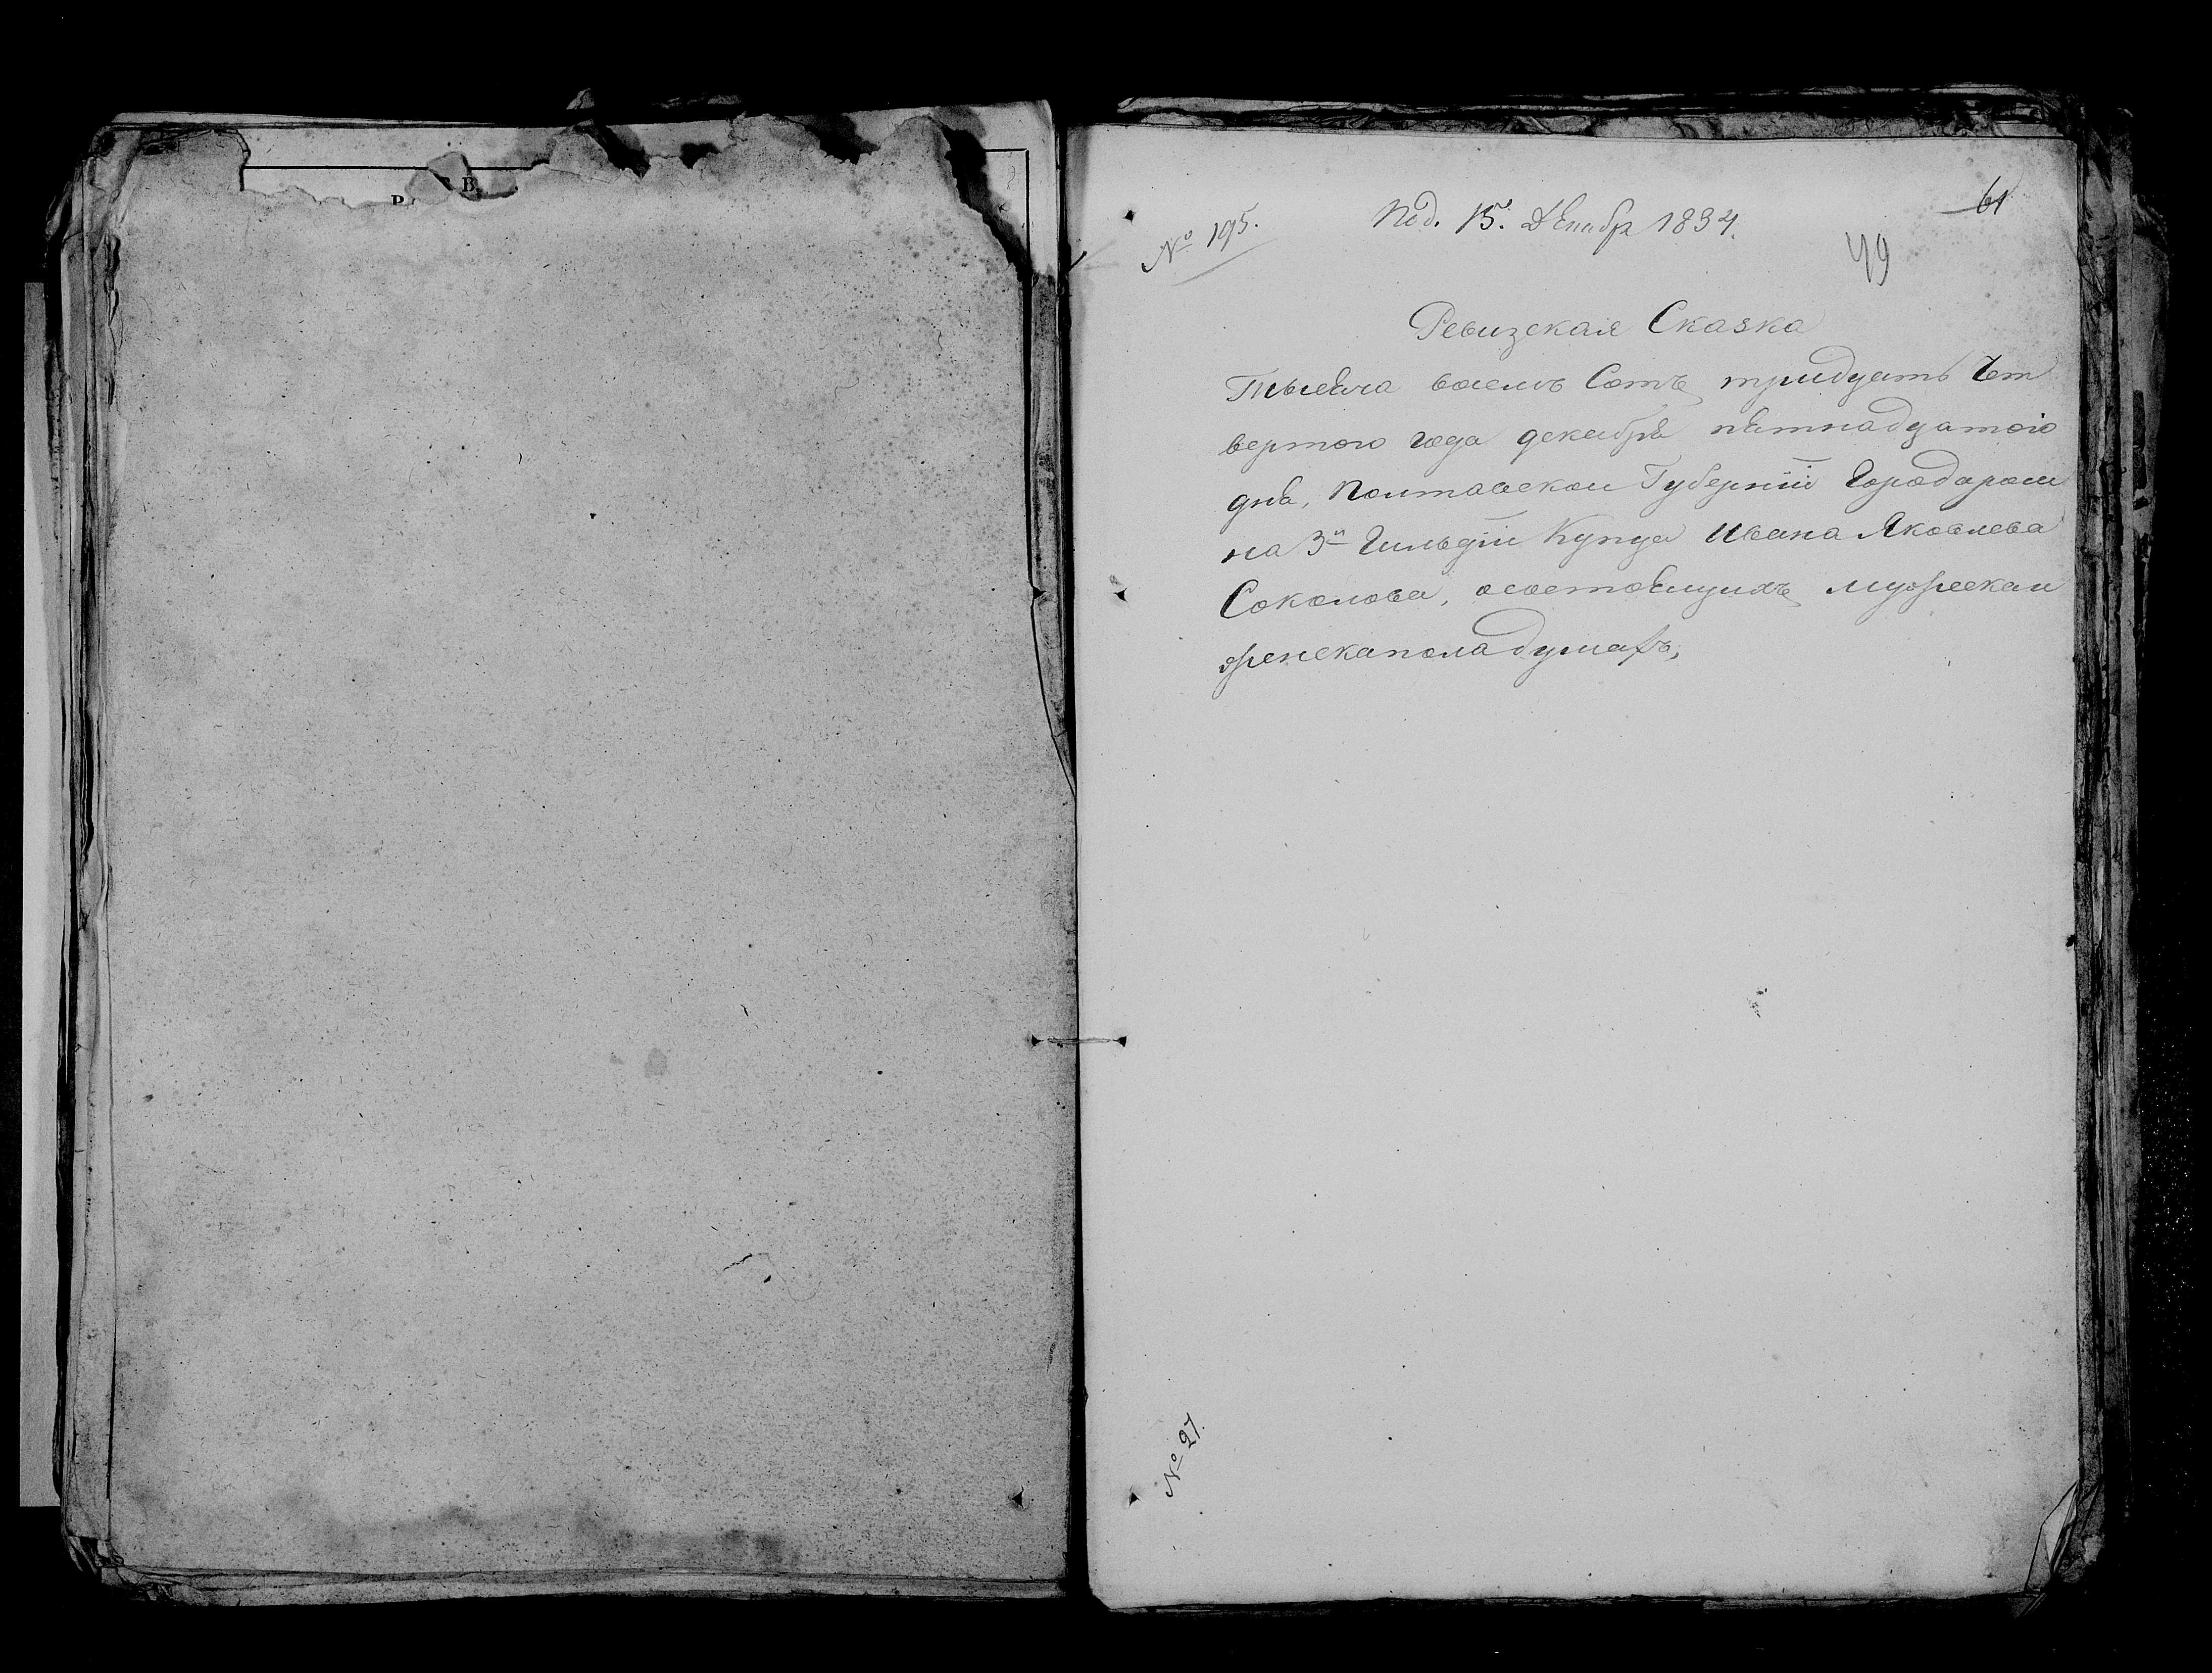 В.
Р
№ 195.
Под. 15. Декабр 1834.
61
49
Ревизская Сказка
Тысяча восемъ Сотъ тридцать Чет
вертого года декабря пятнадцатого
дня, Полтавской Губерніи Города ром
на 3й Гильдіи Купца Ивана Яковлева
Соколова, осостоящихъ мужескаи
женскапола душахъ,
№ 27.